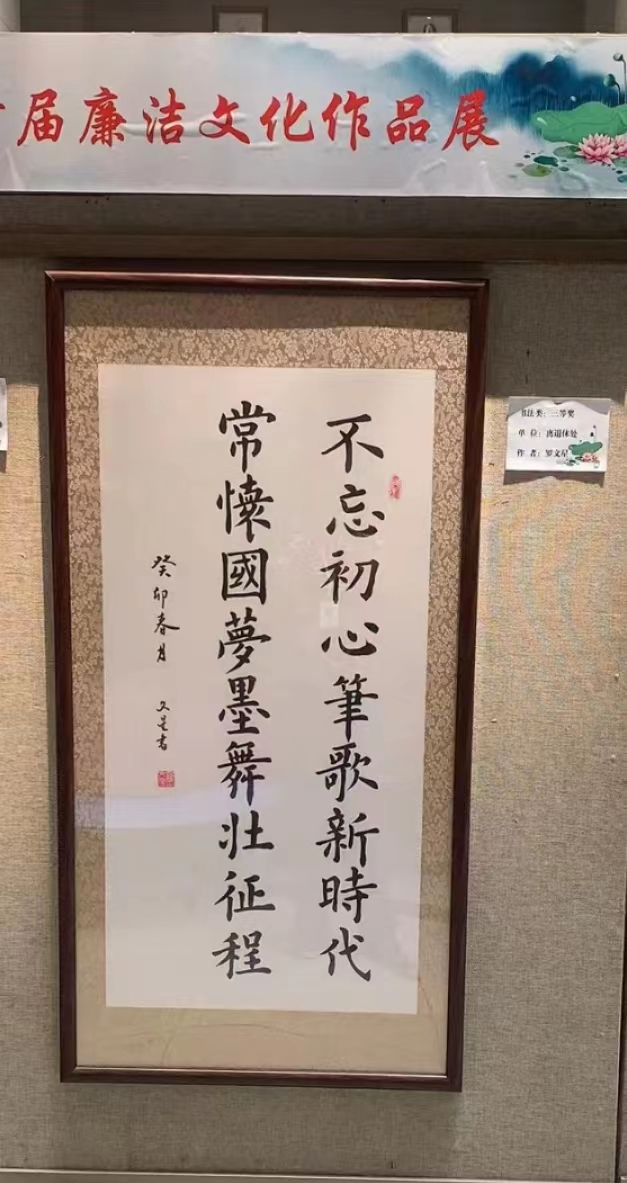 届廉洁文化作品展
不忘初心筆歌新時代
常懷國夢墨舞壯征程
癸卯春月 文星書
书法类：三等奖
单 位：离退休处
作 者：罗文星